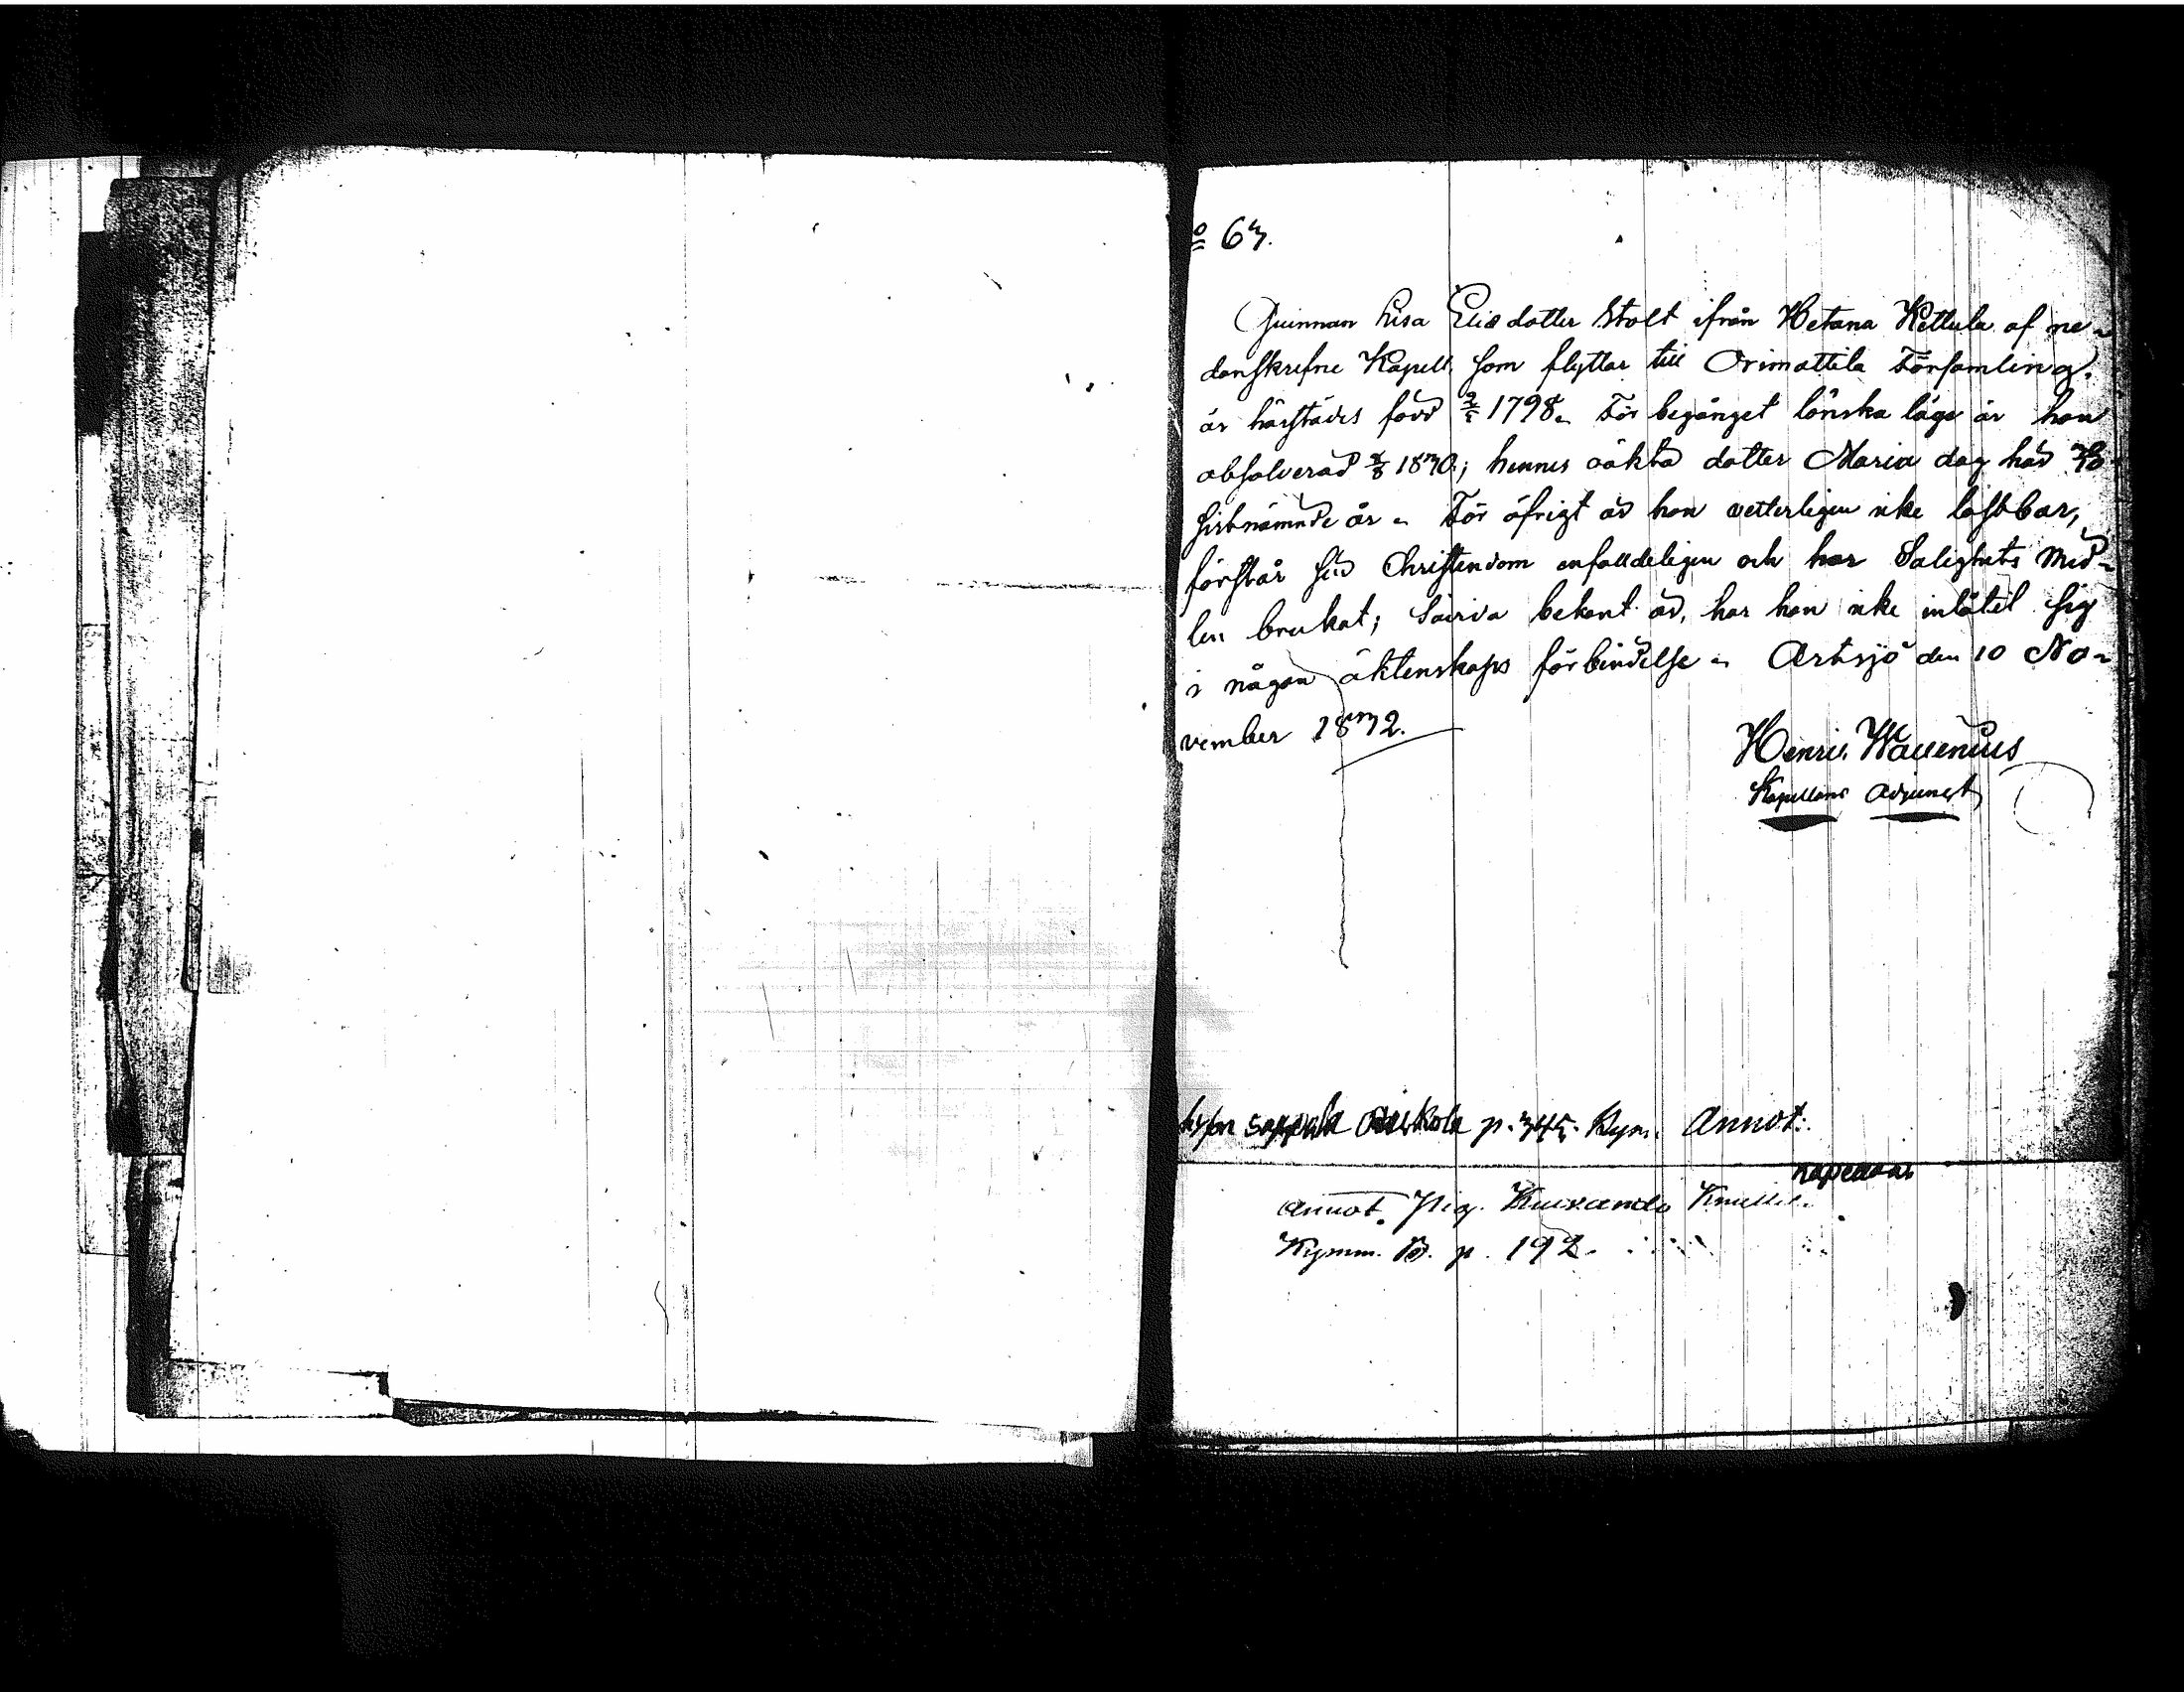 № 63.
Quinnan Lisa Eliædotter Stolt ifrån Hietana Kettula af ne-
danskrefne Kapell, som flyttar till Orimattila Församling,
är härstädes född 1798. För begånget lönska läge är hon
absolverad 1830; hennes oäkta dotter Maria dog
sistnämnde år. För öfrigt är hon vetterligen icke lastbar,
förstår sin Christendom enfalldeligen och har Salighets Med-
len brukat; Såvida bekant är, har hon icke inlåtit sig
i någon äktenskaps förbindelse. Artsjö den 10 No-
vember 1832.
Henric Wallenius
Kapellans Adjunct
Seppälä p. 345. Kym. Annot.
Kapellan
Annot. Pig.
Kymm. B. p. 192.